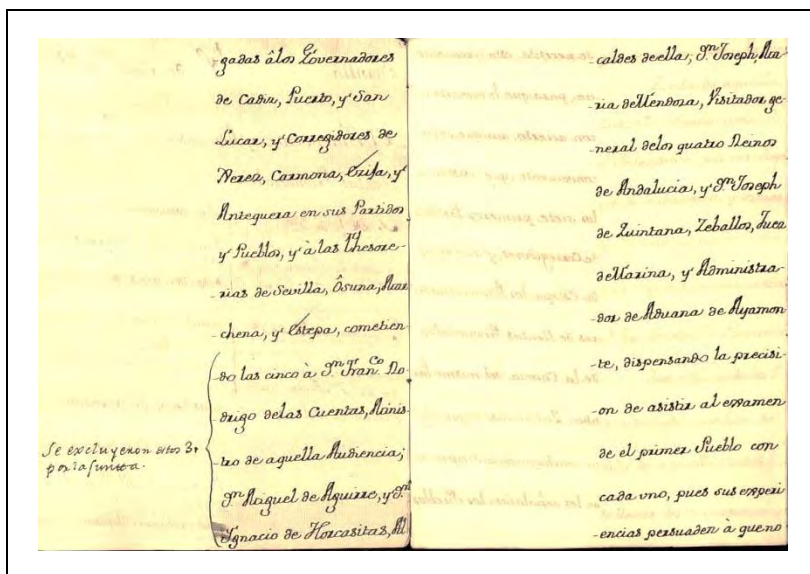 gadas âlos Governadores
de Cadiz, Puerto, y San
Lucar, y Corregidores de
Xerez, Carmona, Trifa, y
Antequera en sus Partidos
y Pueblos, y à las Thesore-
-rias de Sevilla, Ôsuna, Mar
chena, y Estepa, cometien-
-do las cinco à Dn. Franco. Ro-
-drigo delas Cuentas, Minis-
Se excluyeron estos 3.
por la Junta.
-tro de aquella Audiencia;
Dn. Miguel de Aguirre, y Dn.
Ygnacio de Horcasitas, Al
-caldes deella; Dn. Joseph, Ma-
-ria deMendoza, Visitador ge-
-neral delos quatro Reinos
de Andalucia, y Dn. Joseph
de Quintana, Zeballos, Juez
deMarina, y Administra-
-dor de Aduana de Ayamon
-te, dispensando la precisi-
-on de asistir al examen
de el primer Pueblo con
cada vno, pues sus experi
-encias persuaden à queno